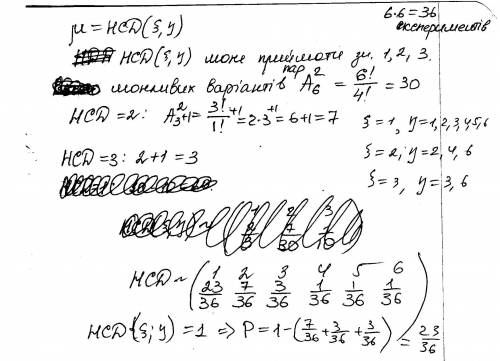 μ = НСD(ξ, y)
6·6=36
експериментів
НСD(ξ, y) може приймати зн. 1, 2, 3.
можливих варіантів пар A₆² = 6!/4! = 30
НСD=2: A₃²+1 = 3!/1! +1 = 2·3+1 = 6+1=7
ξ=1, y=1,2,3,4,5,6
НСD=3: 2+1=3
ξ=2, y=2, 4, 6
ξ=3, y=3, 6
НСD ~ (1 2 3 4 5 6
23/36 7/36 3/36 1/36 1/36 1/36)
НСD(ξ; y) = 1 ⇒ P = 1-(7/36+3/36+3/36) = 23/36